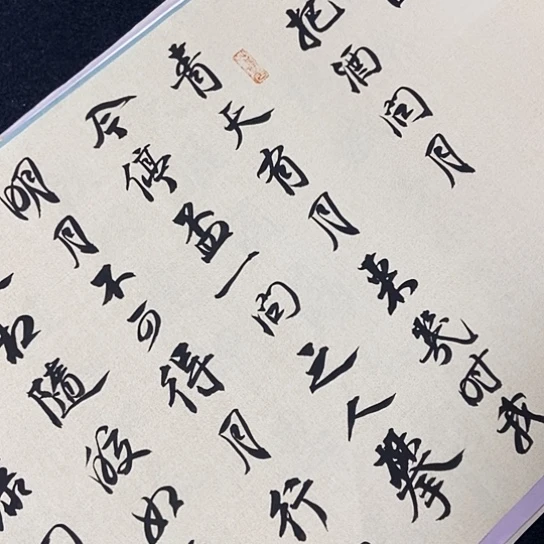 把酒问月
青天有月来幾时我
今停盃一问之人攀
明月不可得月行
相隨皎如